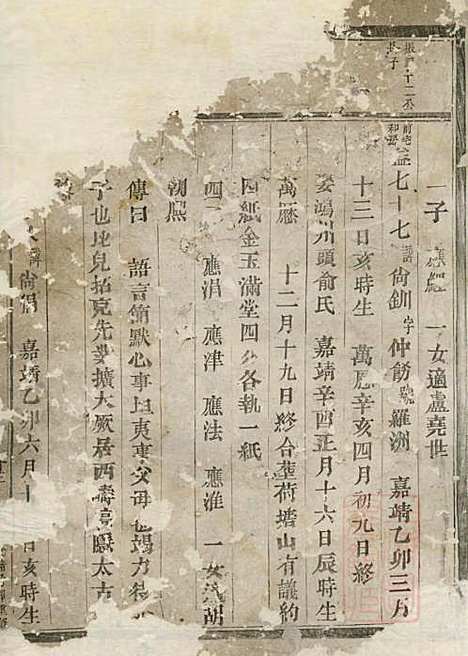 一子 應經 一女適盧堯世
益七十七 諱尙釧 字仲飭 號羅洲 嘉靖乙卯三月
十三日亥時生 萬曆辛亥四月初九日終
娶鴻州頭俞氏 嘉靖辛酉正月十六日辰時生
萬曆 十二月十九日終合葬荷塘山有議約
四紙金玉滿堂四分各執一紙
四子 應涓 應津 應法 應淮 一女適胡
朝熙
傳曰 語言簡默心事坦夷事父母也竭力
子也比兒招克先業擴大厥居西 太古
諱尙 嘉靖乙卯六月十 日亥時生